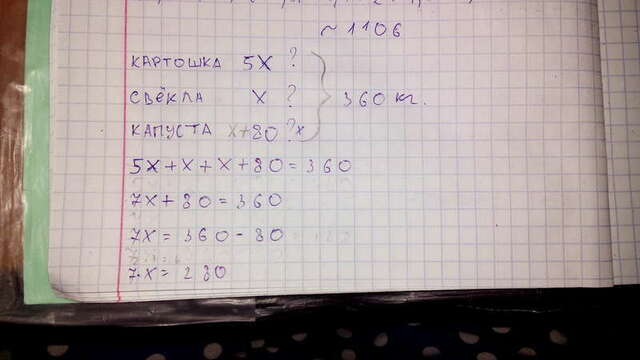 ~1106
КАРТОШКА 5X ?
СВЁКЛА X ? 360 кг.
КАПУСТА X+80 ? x
5X+X+X+80=360
7X+80=360
7X=360-80
7·X=280